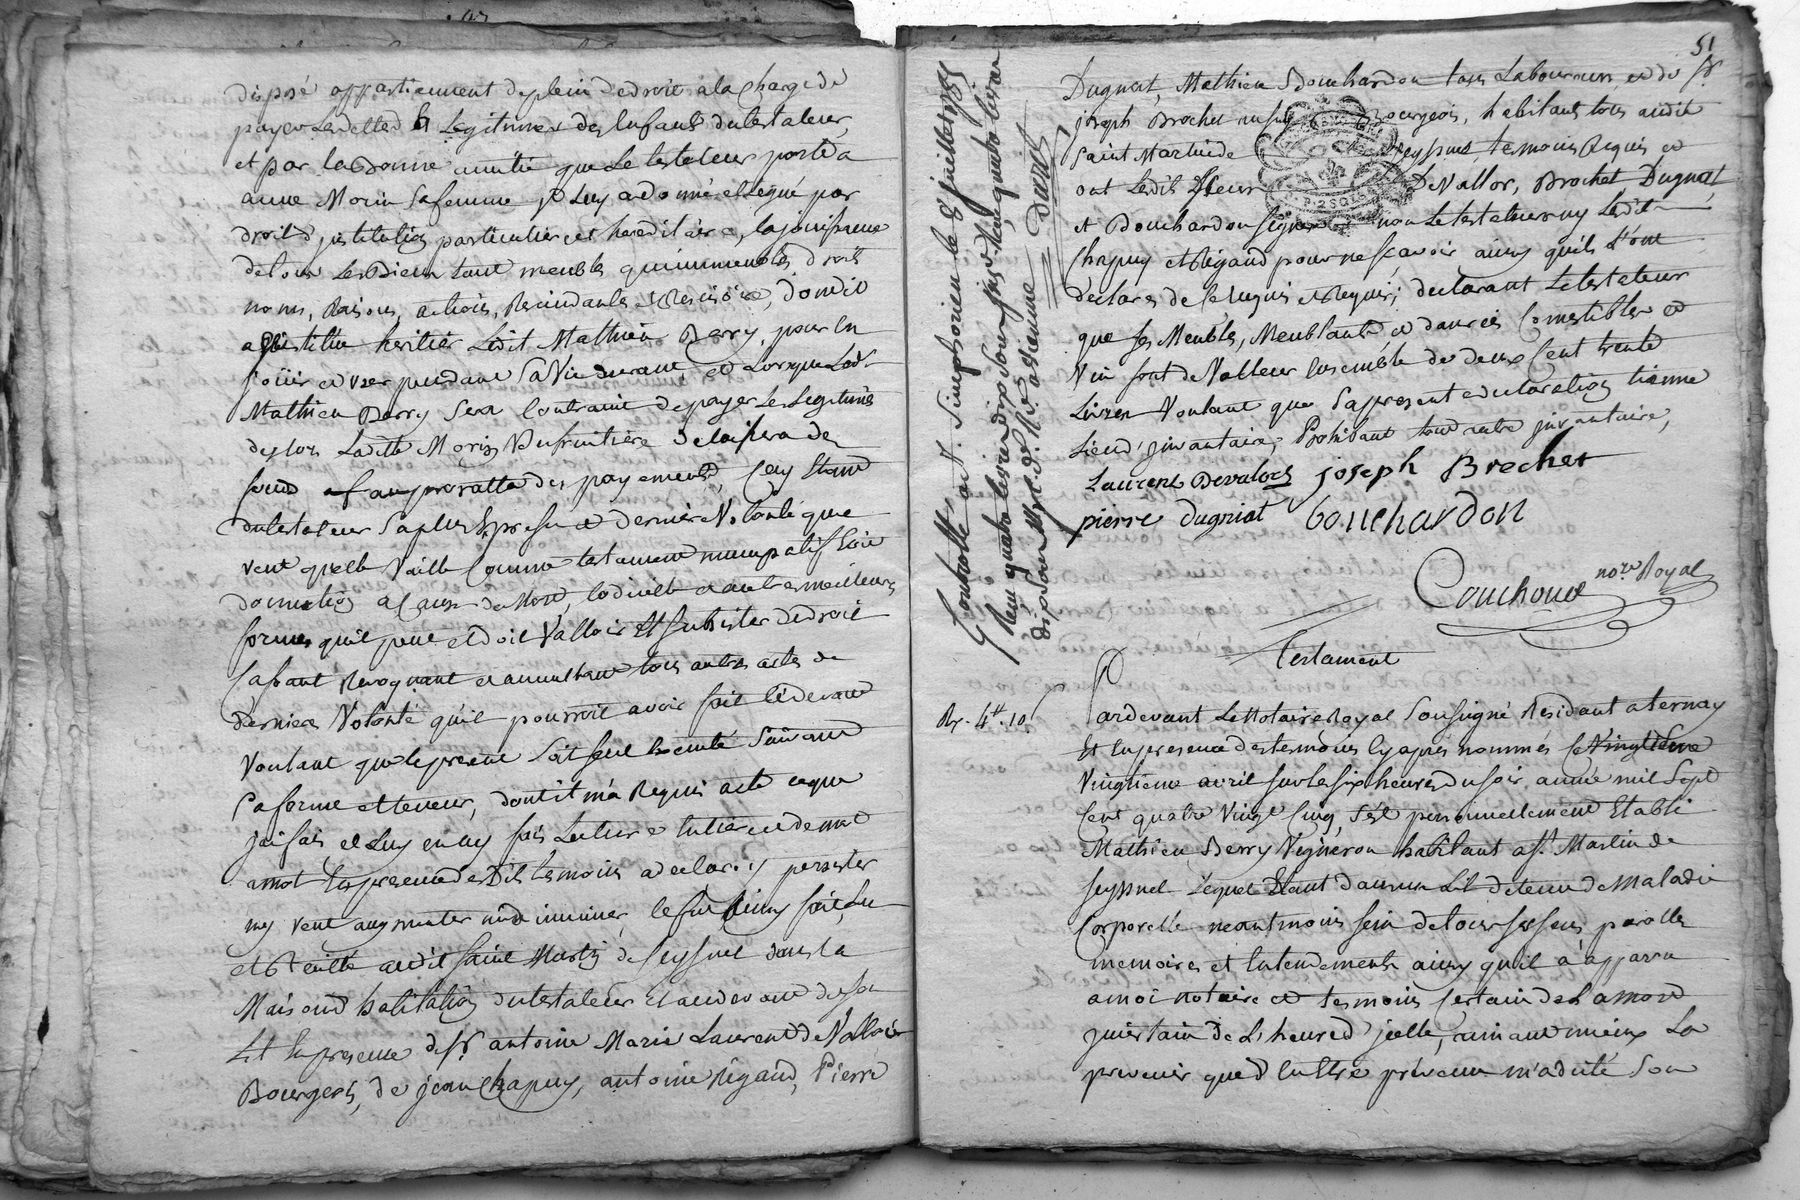 disposé appartiennent de plein de droit a la charge de
payer les dettes et Legitimes des Enfants du testateur,
et par la bonne amitié que le testateur porte a
anne Morin sa femme il luy a donné et legué par
droit d'institution particuliere et hereditaire, la jouissance
de tous les Biens tant meubles qu'immeubles, droits
noms, Raisons, actions, Rescindants et Rescisoires, dont il
a institué heritier Ledit Mathieu Berry, pour en
joüir et user pendant sa Vie durant et Lorsque Ledt
Mathieu Berry Sera Contraint de payer les Legitimes
des lors Laditte Morin Usufruitiere delaissera des
fonds au proratta des payements, Cecy Etant
du testateur sa plus Expresse et derniere Volonté que
veut qu'elle Vaille Comme testament nuncupatif Soit
donnation a Cause de Mort, codicille et autres meilleures
formes qu'il peut et doit Valloir Et subsister de droit
Cassant Revoquant et annullant tous autres actes de
derniere Volonté qu'il pourroit avoir fait cidevant
Voulant que le present Soit seul Executé Suivant
Sa forme et teneur, dont il m'a Requis acte ce que
j'ai fais et luy en ay fais Lecture Entiere et de mot
a mot En presence desdits temoins a declaré y persister
ny veut augmenter ni diminuer le fut ainsy fait, Lu
et Recitté audit Saint Martin de Seyssuel dans la
Maison d'habitation du testateur Et au devant de son
Lit En presence de sr. antoine Marie Laurent de Vallors
Bourgeois, de jean Chapuy, antoine Rigaud, Pierre
51
Dugnat, Mathieu Bouchardon tous Laboureurs, et de sr.
joseph Brochet Bourgeois, habitants tous audit
Saint Martin de Seyssuel, temoins Requis et
ont Lesdits Sieurs De Vallor, Brochet, Dugnat
et Bouchardon signé non Le testateur ny Lesdit
Chapuy et Rigaud pour ne sçavoir ainsy qu'ils l'ont
déclarés de ce enquis et Requis; declarant Le testateur
que ses Meubles, Meublants et danrées Comestibles et
Vin sont de Valleur Ensemble de deux Cent trente
Livres Voulant que Sa present e declaration tienne
Lieu d'jnvantaire, Prohibant tout autre jnvantaire,
Laurent Devalors joseph Brochet
pierre dugniat bouchardon
Couchoud nore Royal
Controllé a St. Simphorien le 8 juillet 1785
Testament
Rx. 4tt. 10s
Pardevant Le Notaire Royal Soussigné Residant a ternay
Et En presence des temoins Cy apres nommés Ce Vinglième
Vingtième avril sur les six heures du soir année mil Sept
Cent quatre Vingt Cinq, s'est personnellement Etabli
Mathieu Berry Vigneron habitant a St. Martin de
Seyssuel Lequel Etant dans un Lit detenu de Maladie
Corporelle neantmoins sein de tous ses sens, parolle
memoires et Entendements ainsy qu'il a apparu
a moi notaire et temoins Certain de la mort
jncertain de L'heure d'jcelle, aimant mieux La
prevenir que d'En Etre prévenu m'a dicté son